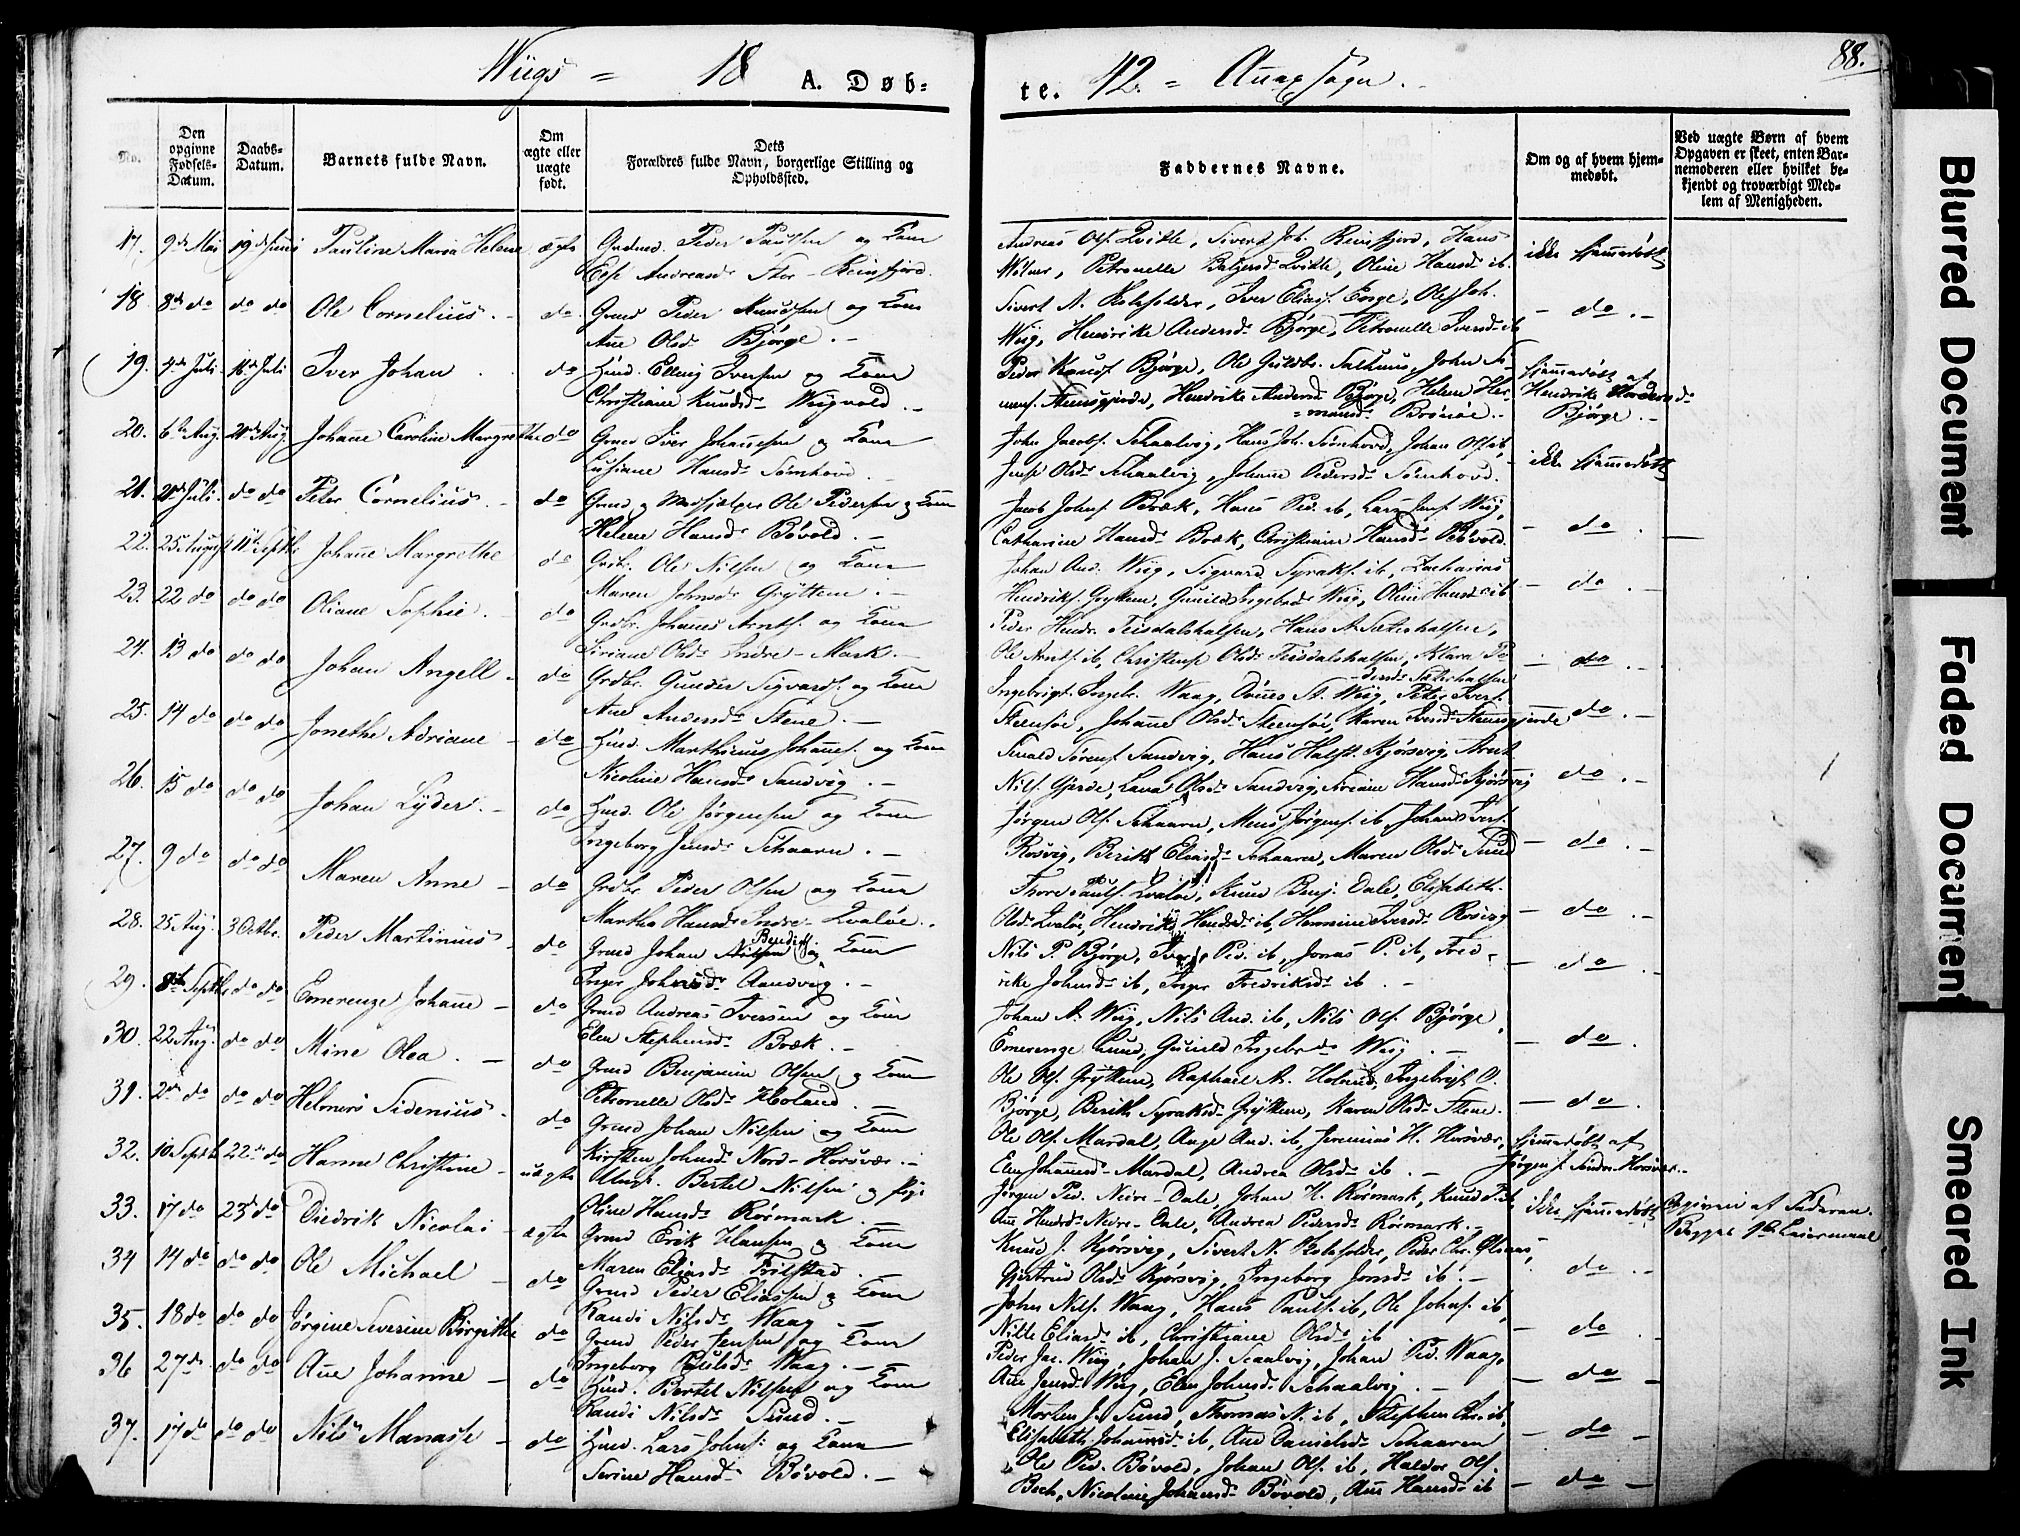 Wiigs = 18 A. Døb-
te. 42. = Anax sogn.
88.
No.
Den opgivne Fødsels-Datum.
Daabs-Datum.
Barnets fulde Navn.
Om ægte eller uægte født.
Dets Forældres fulde Navn, borgerlige Stilling og Opholdssted.
Faddernes Navne.
Om og af hvem hjem-
medøbt.
Ved uægte Børn af hvem
Opgaven er skeet, enten Bar-
nemoderen eller hvilket be-
kjendt og troværdigt Med-
lem af Menigheden.
17. 9de Mai 19de Juni Pauline Maria Helene ægte Gudmd. Peder Paulsen og Kone
Else Andreasd. Stor-Reinfjord.
Andreas Ols. Qvitle, Sivert Joh. Reinfjord, Hans
Petronelle Qvitle, Oline Hansd. ib.
ikke hjemmedøbt
18. 8de do do do Ole Cornelius. do. Grmd Peder Knudsen og Kone
Ane Olsd. Bjørge.
Sivert A. Iver Elias. Ole Joh.
Wiig, Henrikke Andersd. Bjørge, Petronelle Iversd. ib
do.
19. 4de Juli 16de Juli Iver Johan do Huud. Elling Iversen og Kone
Christiane Knudsd. Wiigvold.
Peder Knuds. Bjørge, Ole Guldbr. Salhuus, John
Henrikke Andersd. Bjørge, Helene Her-
=mansd. Brønøe.
hjemmedøbt af
Hendrike Andersd.
Bjørge.
20. 6te Aug. 21de Aug. Johanne Caroline Margrethe do Grmd Iver Johansen og Kone
Lusiane Hansd. Sømhovd
John Jacobs. Schaalvig, Hans Joh. Sømhovd, Johan Ols. ib,
Olsd. Schaalvig, Johanne Pedersd. Sømhovd.
ikke hjemmedøbt
21. Juli. do do Peter Cornelius. do Grmd og Ole Pedersen og Kone
Helene Hansd. Bøvold.
Jacob Johns. Bræk, Hans Ped. ib, Lars Jens. Wiig,
Catharine Hansd. Bræk, Christiane Hansd. Bøvold
do.
22. 25 August 11te Septbr. Johanne Margrethe do Grdbr. Ole Nilsen og Kone
Maren Johnsd. Gryttem.
Johan And. Wiig, Sigvard Syraks. ib, Zacharias
Hendriks. Gryttem, Gunild Ingebrd. Wiig, Oline Hansd. ib
do.
23. 22 do do do Oliane Sophie. do Grdbr. Johanes Arnts. og Kone
Siriane Olsd. Indre-Mark.
Peder Hendr. Teisdalshalsen, Hans A. Sæterhalsen,
Ole Arnts. ib, Christense Olsd. Teisdalshalsen, Maren Pe
dersd. Sæterhalsen
do.
24. 13 do do do Johan Angell do Grdbr. Gunder Sigvards. og Kone
Ane Andersd. Stene.
Ingebrigt Ingebr. Waag, Dønnes St. Wiig, Peter Ivers.
Steensøe, Johanne Olsd. Steensøe, Karen Iversd. Steensgjerde
do.
25. 14 do do do Jonethe Adriane do Huud. Marthinus Johans. og Kone
Nicoline Hansd. Sandvig.
Sørens. Sandvig, Hans Kjørsvig, Arnt
Nils. Gjerde, Lava Olsd. Sandvig, Siriane Hansd. Kjørsvig
do.
26. 15 do do do Johan Lyder. do Huud. Ole Jørgensen og Kone
Ingeborg Jensd. Schaaren.
Jørgen Ols. Schaaren, Mens Jørgens. ib, Johan Ivers.
Rosvig, Berith Eliasd. Schaaren, Maren Olsd. Sund
do.
27. 9 do do do Maren Anne do Grdbr. Peder Olsen og Kone
Martha Hansd. Indre-Qvaløe.
Thore Pauls. Qvaløe, Knud Benj. Dale, Elisabeth
Olsd. Qvaløe, Hendrikke Hansd. ib, Hermine Iversd. Rosvig
do.
28. 25 Aug. 3 Octbr. Peder Martinus do Grmd Johan Nilsen Bendiks. og Kone
Inger Johnsd. Aandvig.
Nils P. Bjørge, Iver Ped. ib, Jonas P. ib, Fred-
rike Johnsd. ib, Inger Fredriksd. ib.
do.
29. 8de Septbr. do do Emerenze Johanne do Grmd Andreas Iversen og Kone
Elen Stephensd. Bræk.
Johan A. Wiig, Nils And. ib, Nils Ols. Bjørge,
Emerenze Lund, Gunild Ingebrd. Wiig.
do.
30. 22 Aug. do do Mine Olea. do Grmd Benjamin Olsen og Kone
Petronelle Olsd. Holand.
Ole Ols. Gryttem, Raphael A. Holand, Ingebrigt O.
Bjørge, Berith Syraksd. Gryttem, Karen Olsd. Stene.
do.
31. 2de do do do Helmers Sidenius. do Grmd Johan Nilsen og Kone
Kirsten Johnsd. Nord-Horsvær.
Ole Ols. Mardal, Aage And. ib, Jeremias H. Horsvær,
Elen Johannsd. Mardal, Andrea Olsd. ib.
hjemmedøbt af
Jørgen J. Søndre-Horsvær.
32. 10 Septbr. 22de do Hanne Christine uægte Ungk. Bertel Nilsen og Pige
Oline Hansd. Rørmark.
Jørgen Ped. Nedre-Dale, Johan H. Rørmark, Knud P. ib
Ane Hendrd. Nedre-Dale, Andrea Pedersd. Rørmark.
ikke hjemmedøbt
Opgiven af Faderen.
Begges 1ste Leiermaal
33. 17 do 23de do Diedrik Nicolai ægte Grmd Erik Hansen og Kone
Maren Eliasd. Trælstad.
Knud J. Kjørsvig, Sivert N. Peder Chr. Glesnæs,
Gjertrud Olsd. Kjørsvig, Ingeborg Jonsd. ib.
do.
34 14 do do do Ole Michael do Grmd Peder Eliassen og Kone
Randi Nilsd. Waag.
John Nils. Waag, Hans Pauls. ib, Ole Johns. ib,
Nille Eliasd. ib, Christiane Olsd. ib
do
35. 18 do do do Jørgine Severine Birgitthe do Grmd Peder Jensen og Kone
Ingeborg Paulsd. Waag.
Peder Jac. Wiig, Johan J. Scaalvig, Johan Ped. Waag,
Ane Jensd. Wiig, Elen Johnsd. Schaalvig.
do
36 27 do do do Ane Johanne do Huud. Bertel Nilsen og Kone
Randi Nilsd. Sund.
Morten J. Sund, Thomas N. ib, Stephen Chr. ib,
Elisabeth Johannsd. ib, Ane Danielsd. Schaaren
do
37. 17 do do do Nils Manasse do Huud. Lars Johns. og Kone
Serine Hansd. Bøvold.
Ole Ped. Bøvold, Johan Ols. ib, Haldor Ols.
Bech, Nicoline Johansd. Bøvold, Ane Hansd. ib
do
Blurred Document
Faded Document
Smeared Ink